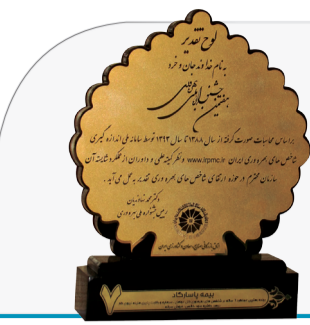 لوح تقدیر
به نام خداوند جان و خرد
هفتمین جشنواره ملی
بر اساس محاسبات صورت گرفته از سال ۱۳۸۸ تا سال ۱۳۹۳ توسط سامانه ملی اندازه گیری
شاخص های بهره وری ایران www.irpmc.ir و نظر کمیته علمی و داوران از عملکرد شایسته آن
سازمان محترم در حوزه ارتقای شاخص های بهره وری تقدیر به عمل می آید.
دکتر محمد
رییس جشنواره ملی بهره وری
۷
بیمه پاسارگاد